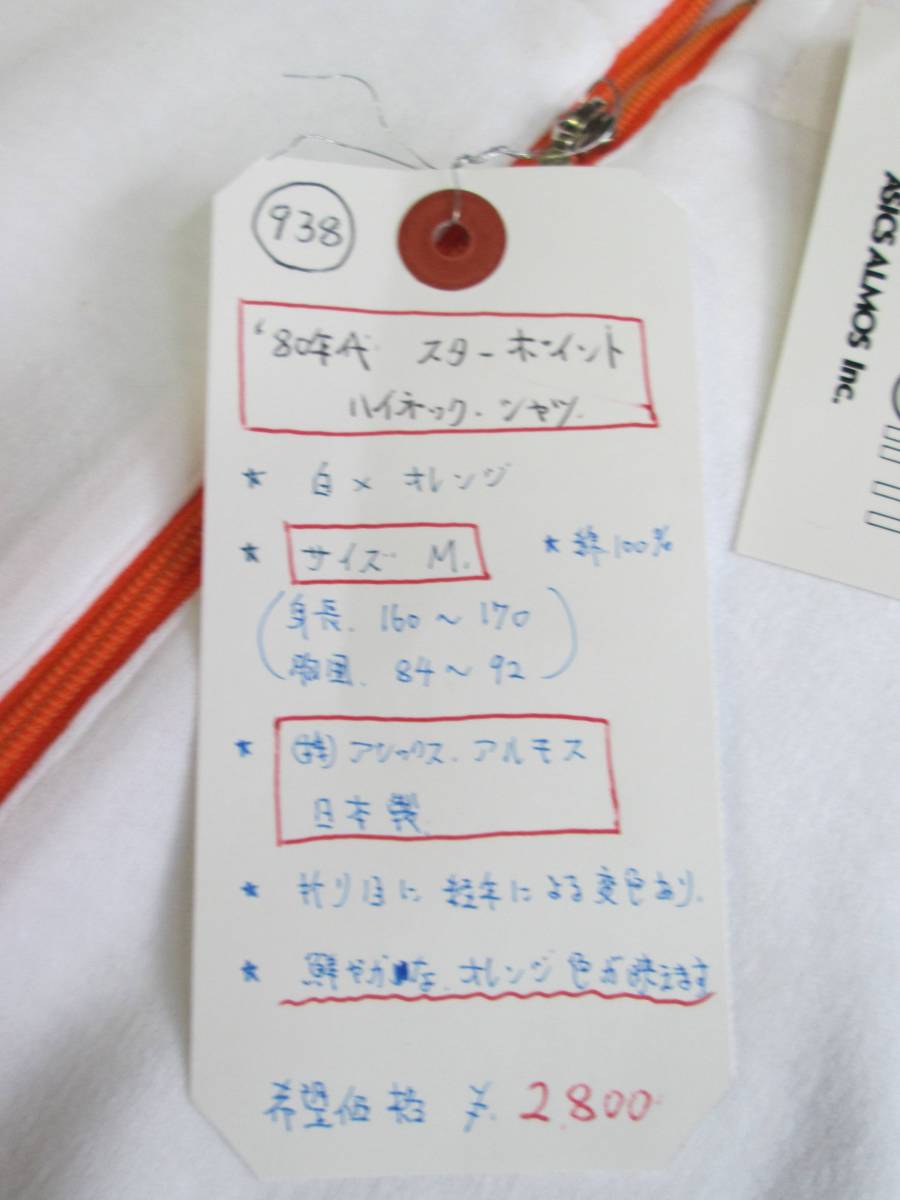 938
'80年代 スターポイント
ハイネック.シャツ.
★ 白×オレンジ
★ サイズ M. ★綿100%
(身長. 160～170
胸囲. 84～92)
★ (株)アシックス.アルモス
日本製
★ 折り目に経年による変色あり.
★ 鮮やかな.オレンジ色が映えます
希望価格 ¥.2.800
ASICS ALMOS Inc.